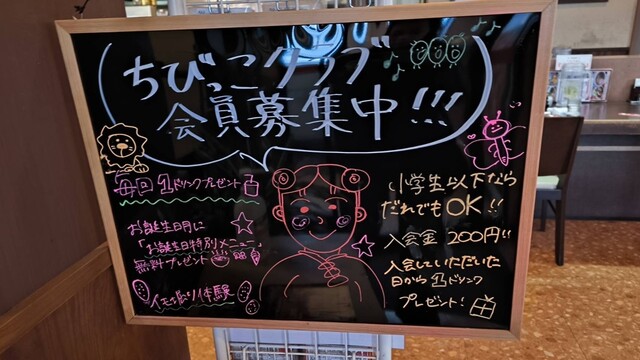 ちびっこクラブ
会員募集中!!!
毎回1ドリンクプレゼント
お誕生日月に
「お誕生日特別メニュー」
無料プレゼント
イモ掘り体験
小学生以下なら
だれでもOK!!
入会金 200円!!
入会していただいた
日から1ドリンク
プレゼント!